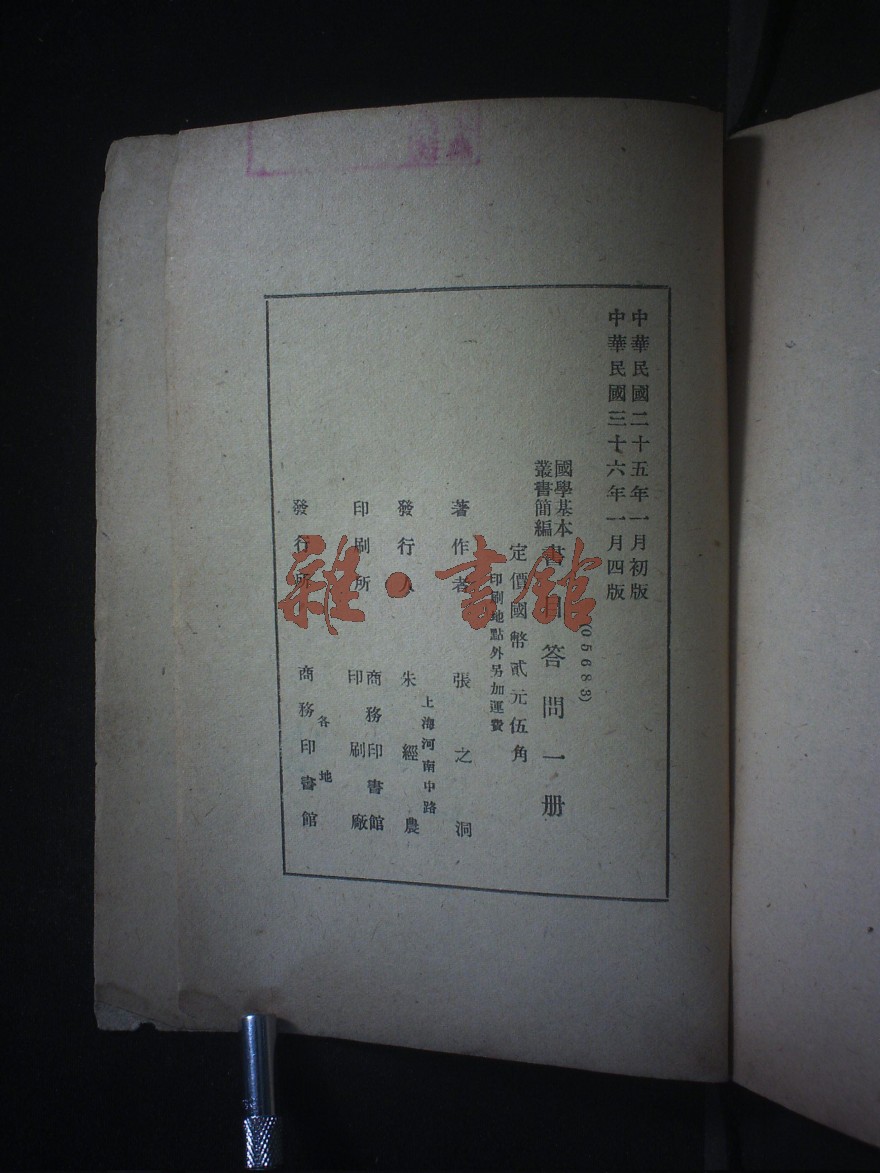 中華民國二十五年一月初版
中華民國三十六年一月四版
(05683)
國學基本
叢書簡編
書目答問一册
定價國幣貳元伍角
印刷地點外另加運費
著作者 張之洞
上海河南中路
發行人 朱經農
印刷所 商務印書館
印刷廠
各地
發行所 商務印書館
雜·書館